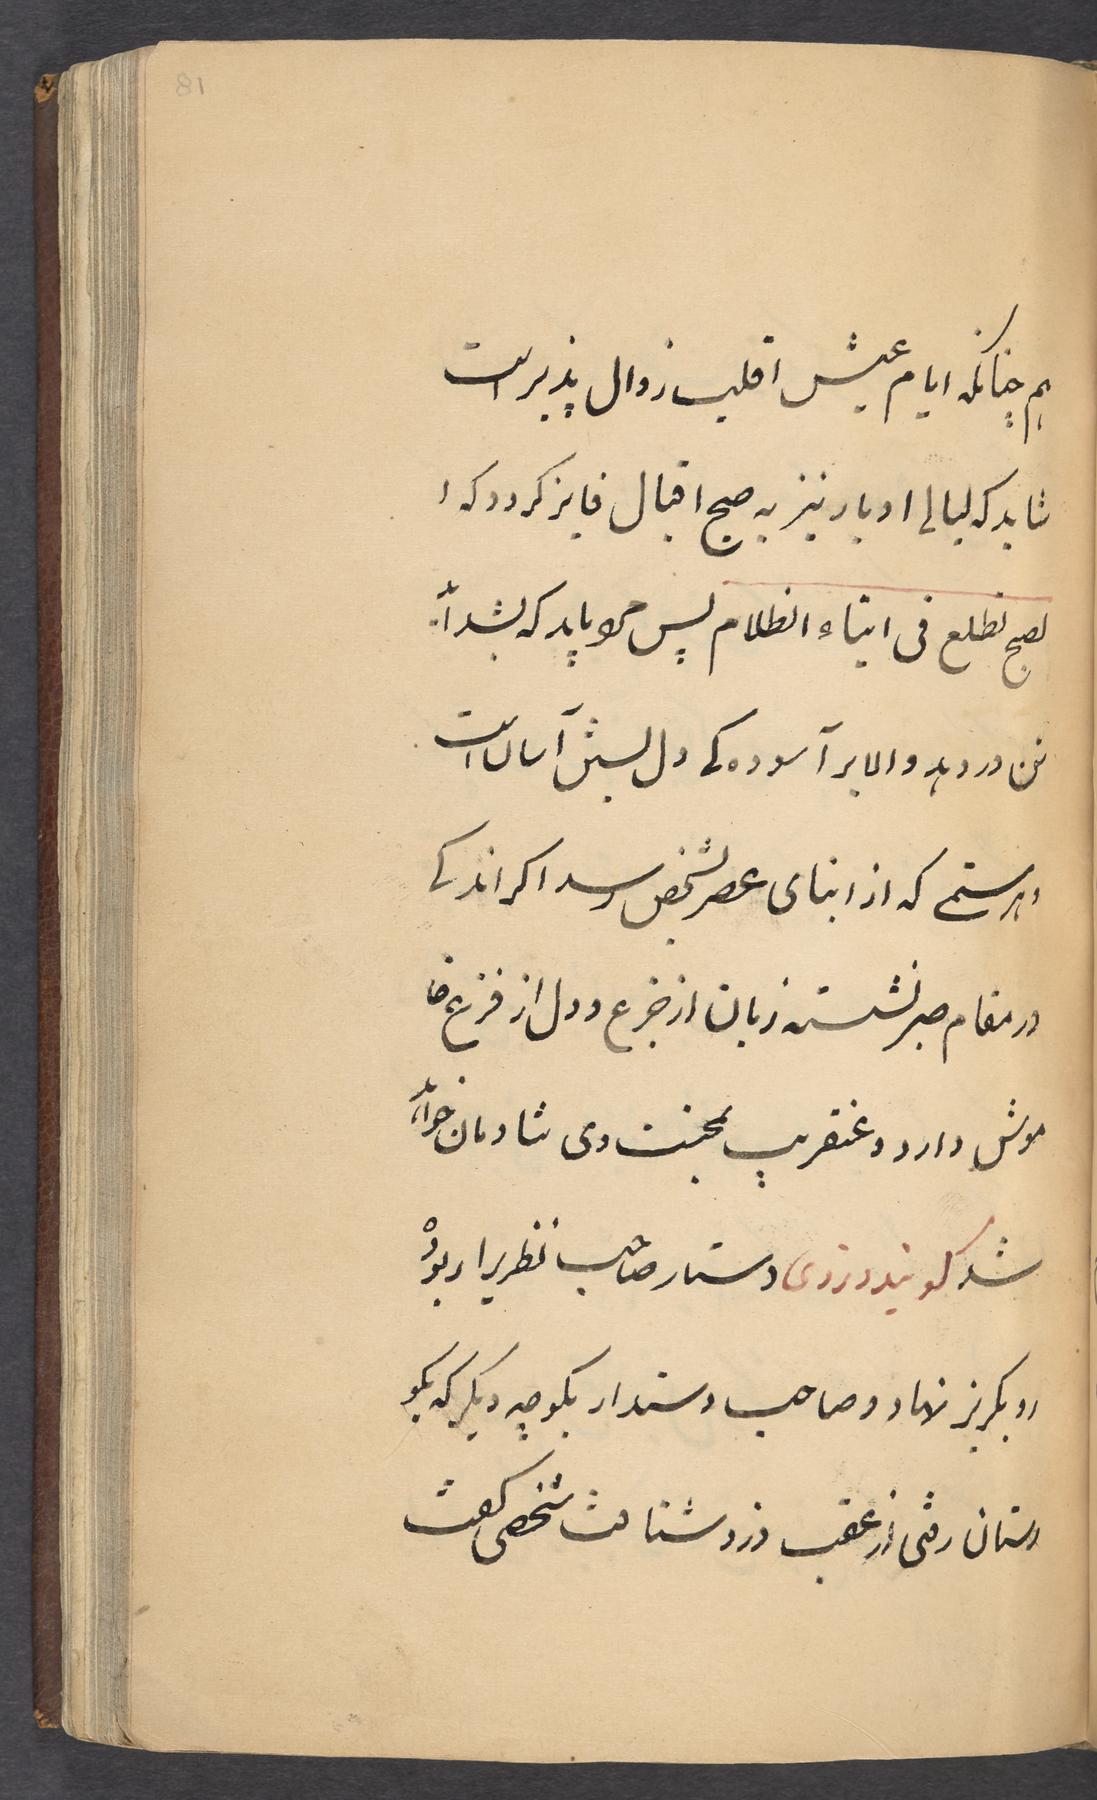 81
هم چنانکه ایام عیش اقلیت زوال پذیر است
شاید که لیالی ادبار نیز به صبح اقبال فایز کردد که ا
لصبح تطلع فی اثناء الظلام پس مرد باید که بشداید
تن در دهد و الا بر آسوده کی دل بستن آسان است
و هر ستمی که از ابنای عصر بشخص رسد اکر اندکی
در مقام صبر نشسته زبان از جزع و دل از فزع خا
موش دارد و عنقریب بمحبنت وی شادمان خواهد
شد کویند دزدی دستار صاحب نظریرا ربود
رو بکریز نهاد و صاحب دستدار بکوچه دیکر که بکو
رستان رفتی از عقب دزد شتافت شخصی کفت